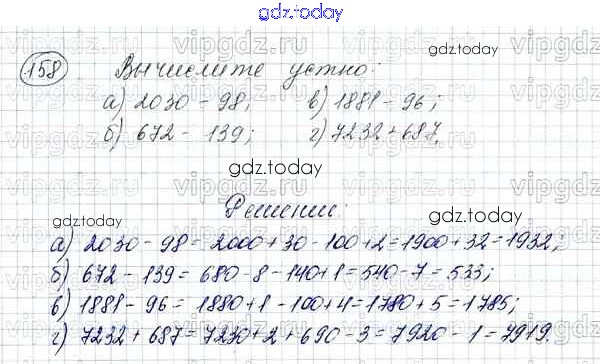 gdz.today
158 Вычислите устно:
а) 2030 - 98;
в) 1881 - 96;
б) 672 - 139;
г) 7232 + 687.
Решение:
а) 2030 - 98 = 2000 + 30 - 100 + 2 = 1900 + 32 = 1932;
б) 672 - 139 = 680 - 8 - 140 + 1 = 540 - 7 = 533;
в) 1881 - 96 = 1880 + 1 - 100 + 4 = 1780 + 5 = 1785;
г) 7232 + 687 = 7230 + 2 + 690 - 3 = 7920 - 1 = 7919.
gdz.today
gdz.today
gdz.today
gdz.today
gdz.today
vipgdz.ru